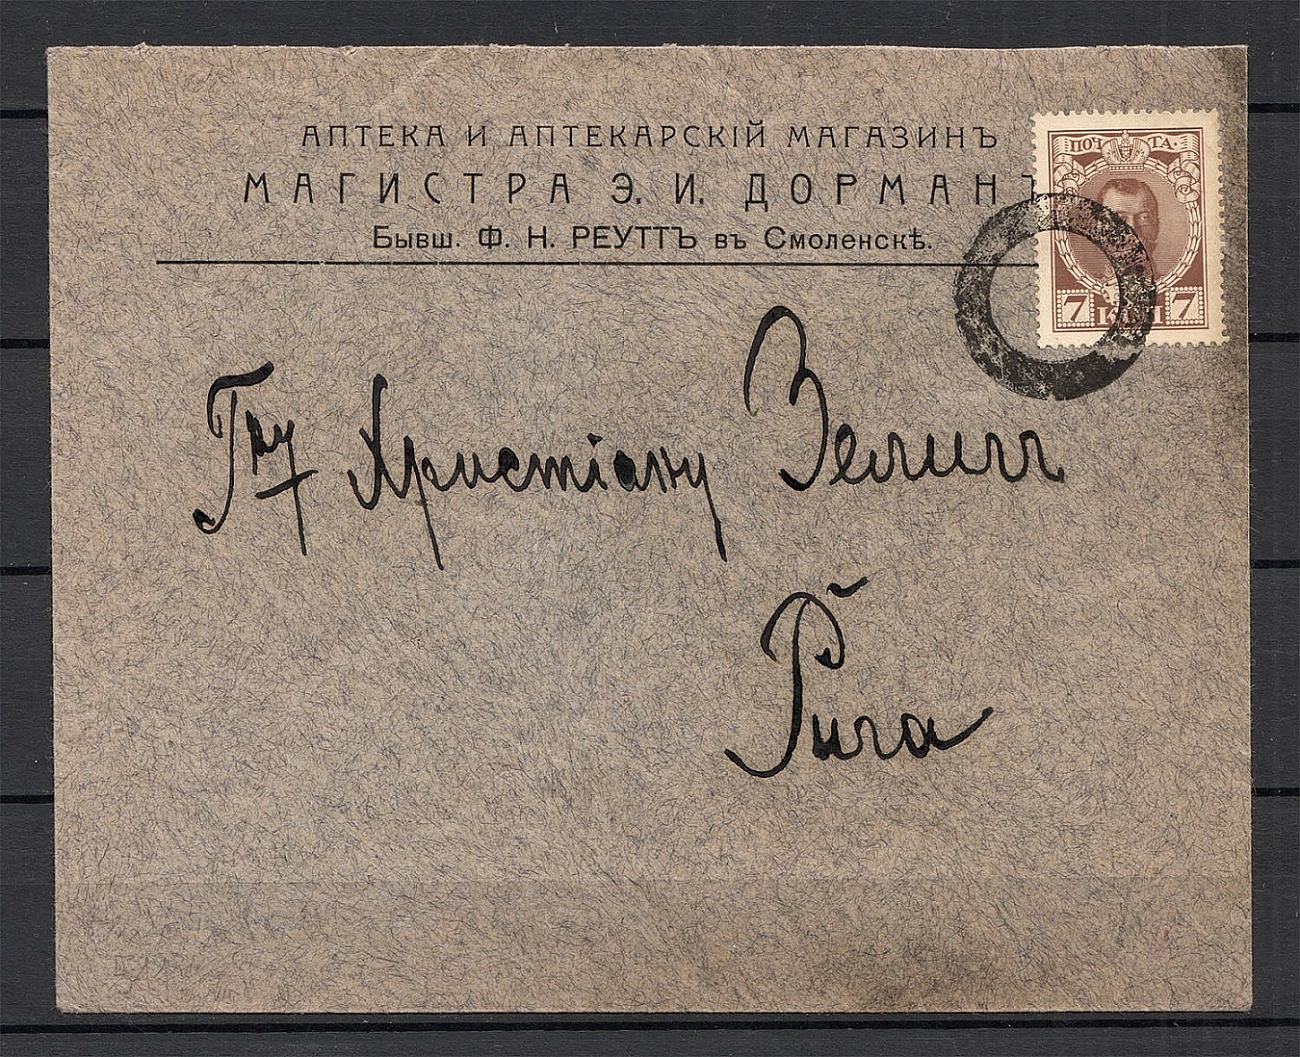 АПТЕКА И АПТЕКАРСКІЙ МАГАЗИНЪ
МАГИСТРА Э. И. ДОРМАНЪ
Бывш. Ф. Н. РЕУТТЪ въ Смоленскѣ.
ПОЧТА.
7 КОП 7
Гну Христіану Зелигг
Рига